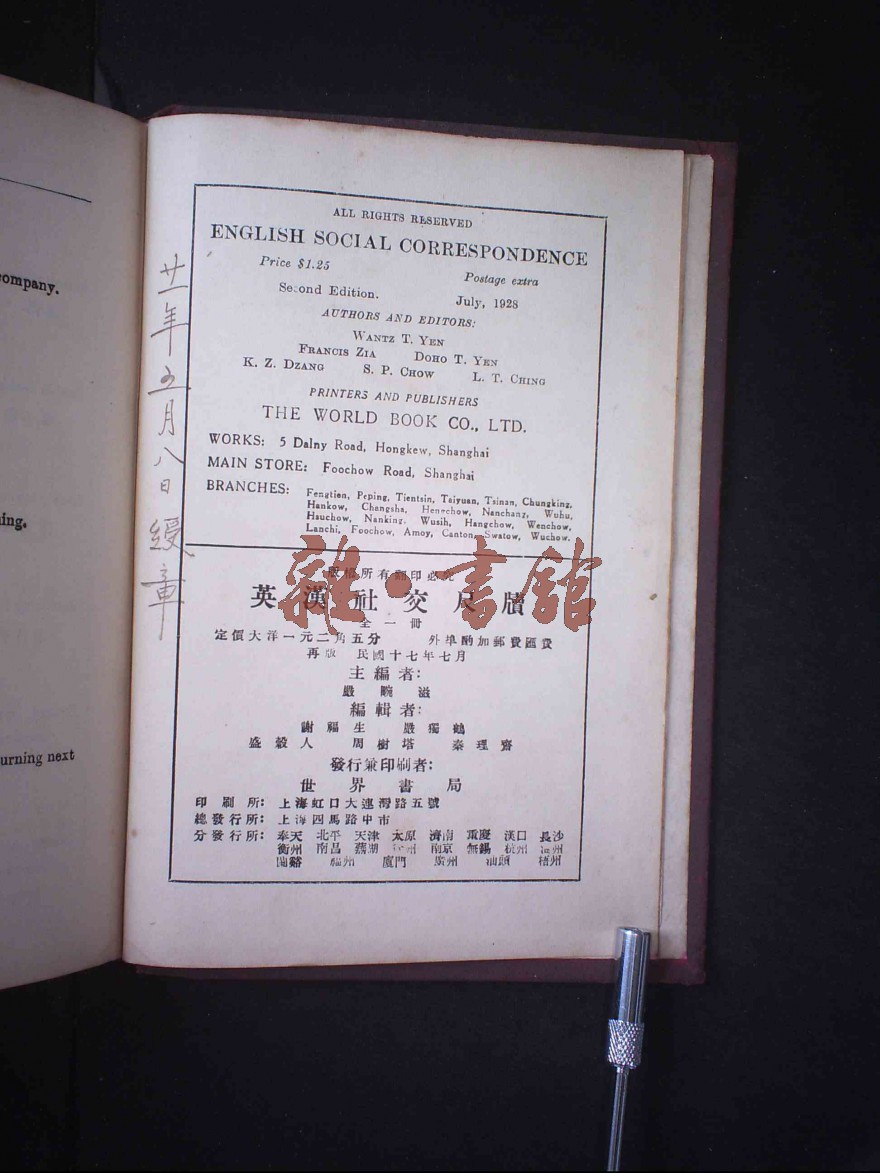 ompany.
ing.
urning next
廿一年五月八日 綬章
ALL RIGHTS RESERVED
ENGLISH SOCIAL CORRESPONDENCE
Price $1.25 Postage extra
Second Edition. July, 1928
AUTHORS AND EDITORS:
WANTZ T. YEN
FRANCIS ZIA DOHO T. YEN
K. Z. DZANG S. P. CHOW L. T. CHING
PRINTERS AND PUBLISHERS
THE WORLD BOOK CO., LTD.
WORKS: 5 Dalny Road, Hongkew, Shanghai
MAIN STORE: Foochow Road, Shanghai
BRANCHES: Fengtien, Peping, Tientsin, Taiyuan, Tsinan, Chungking,
Hankow, Changsha, Hengchow, Nanchang, Wuhu,
Hsuchow, Nanking, Wusih, Hangchow, Wenchow,
Lanchi, Foochow, Amoy, Canton, Swatow, Wuchow.
版權所有翻印必究
雜·書館
英漢社交尺牘
全一冊
定價大洋一元二角五分 外埠酌加郵費匯費
再版 民國十七年七月
主編者:
嚴畹滋
編輯者:
謝福生 嚴獨鶴
盛穀人 周樹塔 秦理齋
發行兼印刷者:
世界書局
印刷所: 上海虹口大連灣路五號
總發行所: 上海四馬路中市
分發行所: 奉天 北平 天津 太原 濟南 重慶 漢口 長沙
衡州 南昌 蕪湖 州 南京 無錫 杭州 溫州
蘭谿 福州 廈門 廣州 汕頭 梧州